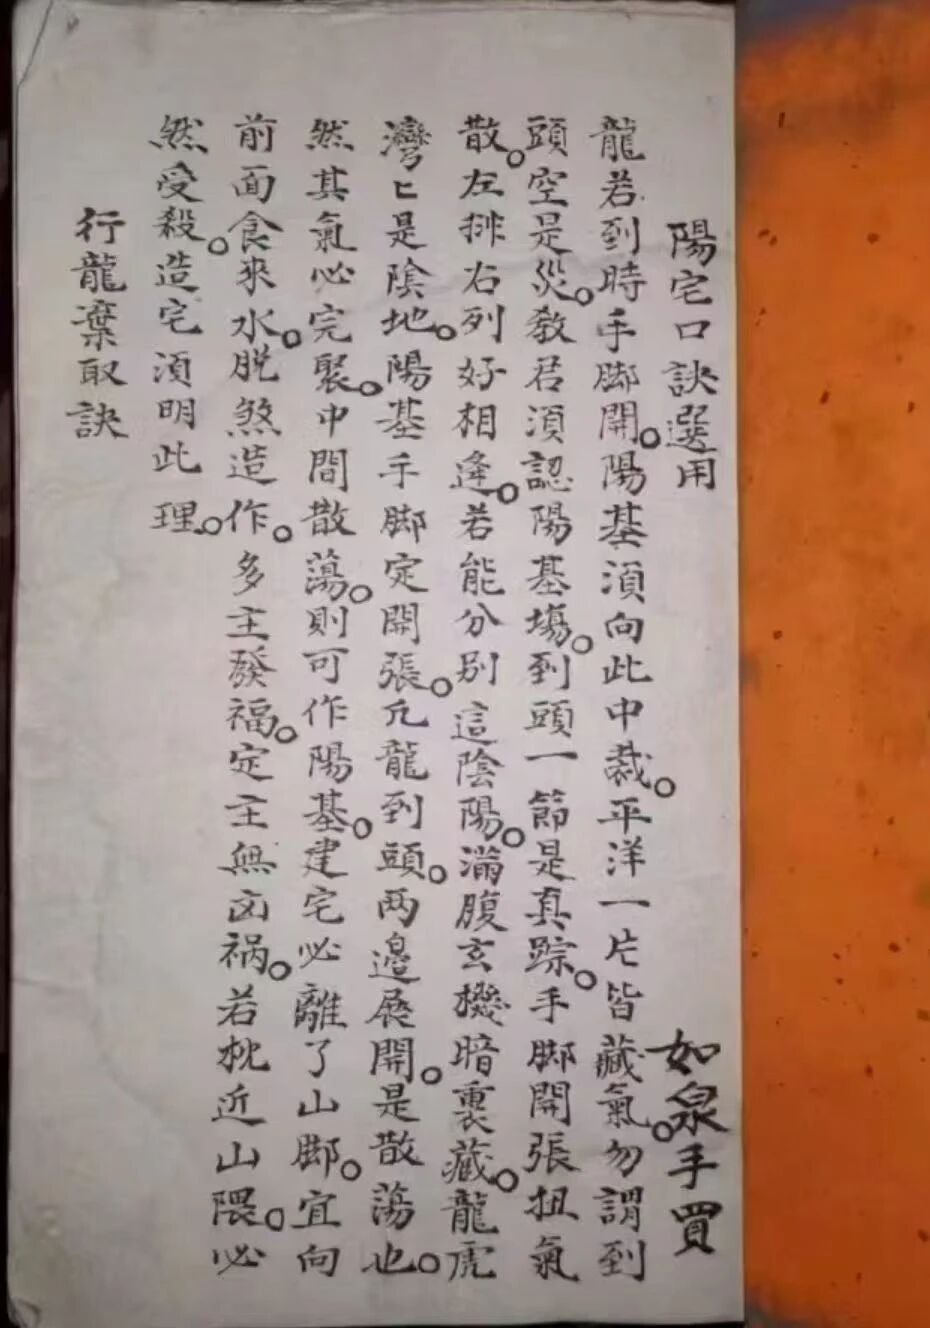 陽宅口訣選用
如泉手買
龍若到時手脚開。陽基須向此中裁。平洋一片皆藏氣。勿謂到
頭空是災。教君須認陽基塲。到頭一節是真踪。手脚開張扭氣
散。左排右列好相逢。若能分别這陰陽。滿腹玄機暗裏藏。龍虎
灣匕是陰地。陽基手脚定開張。凢龍到頭。两邉展開。是散蕩也。
然其氣必完聚。中間散蕩。則可作陽基。建宅必離了山脚。宜向
前面食來水。脱煞造作。多主發福。定主無凶禍。若枕近山隈。必
然受殺。造宅須明此理。
行龍棄取訣